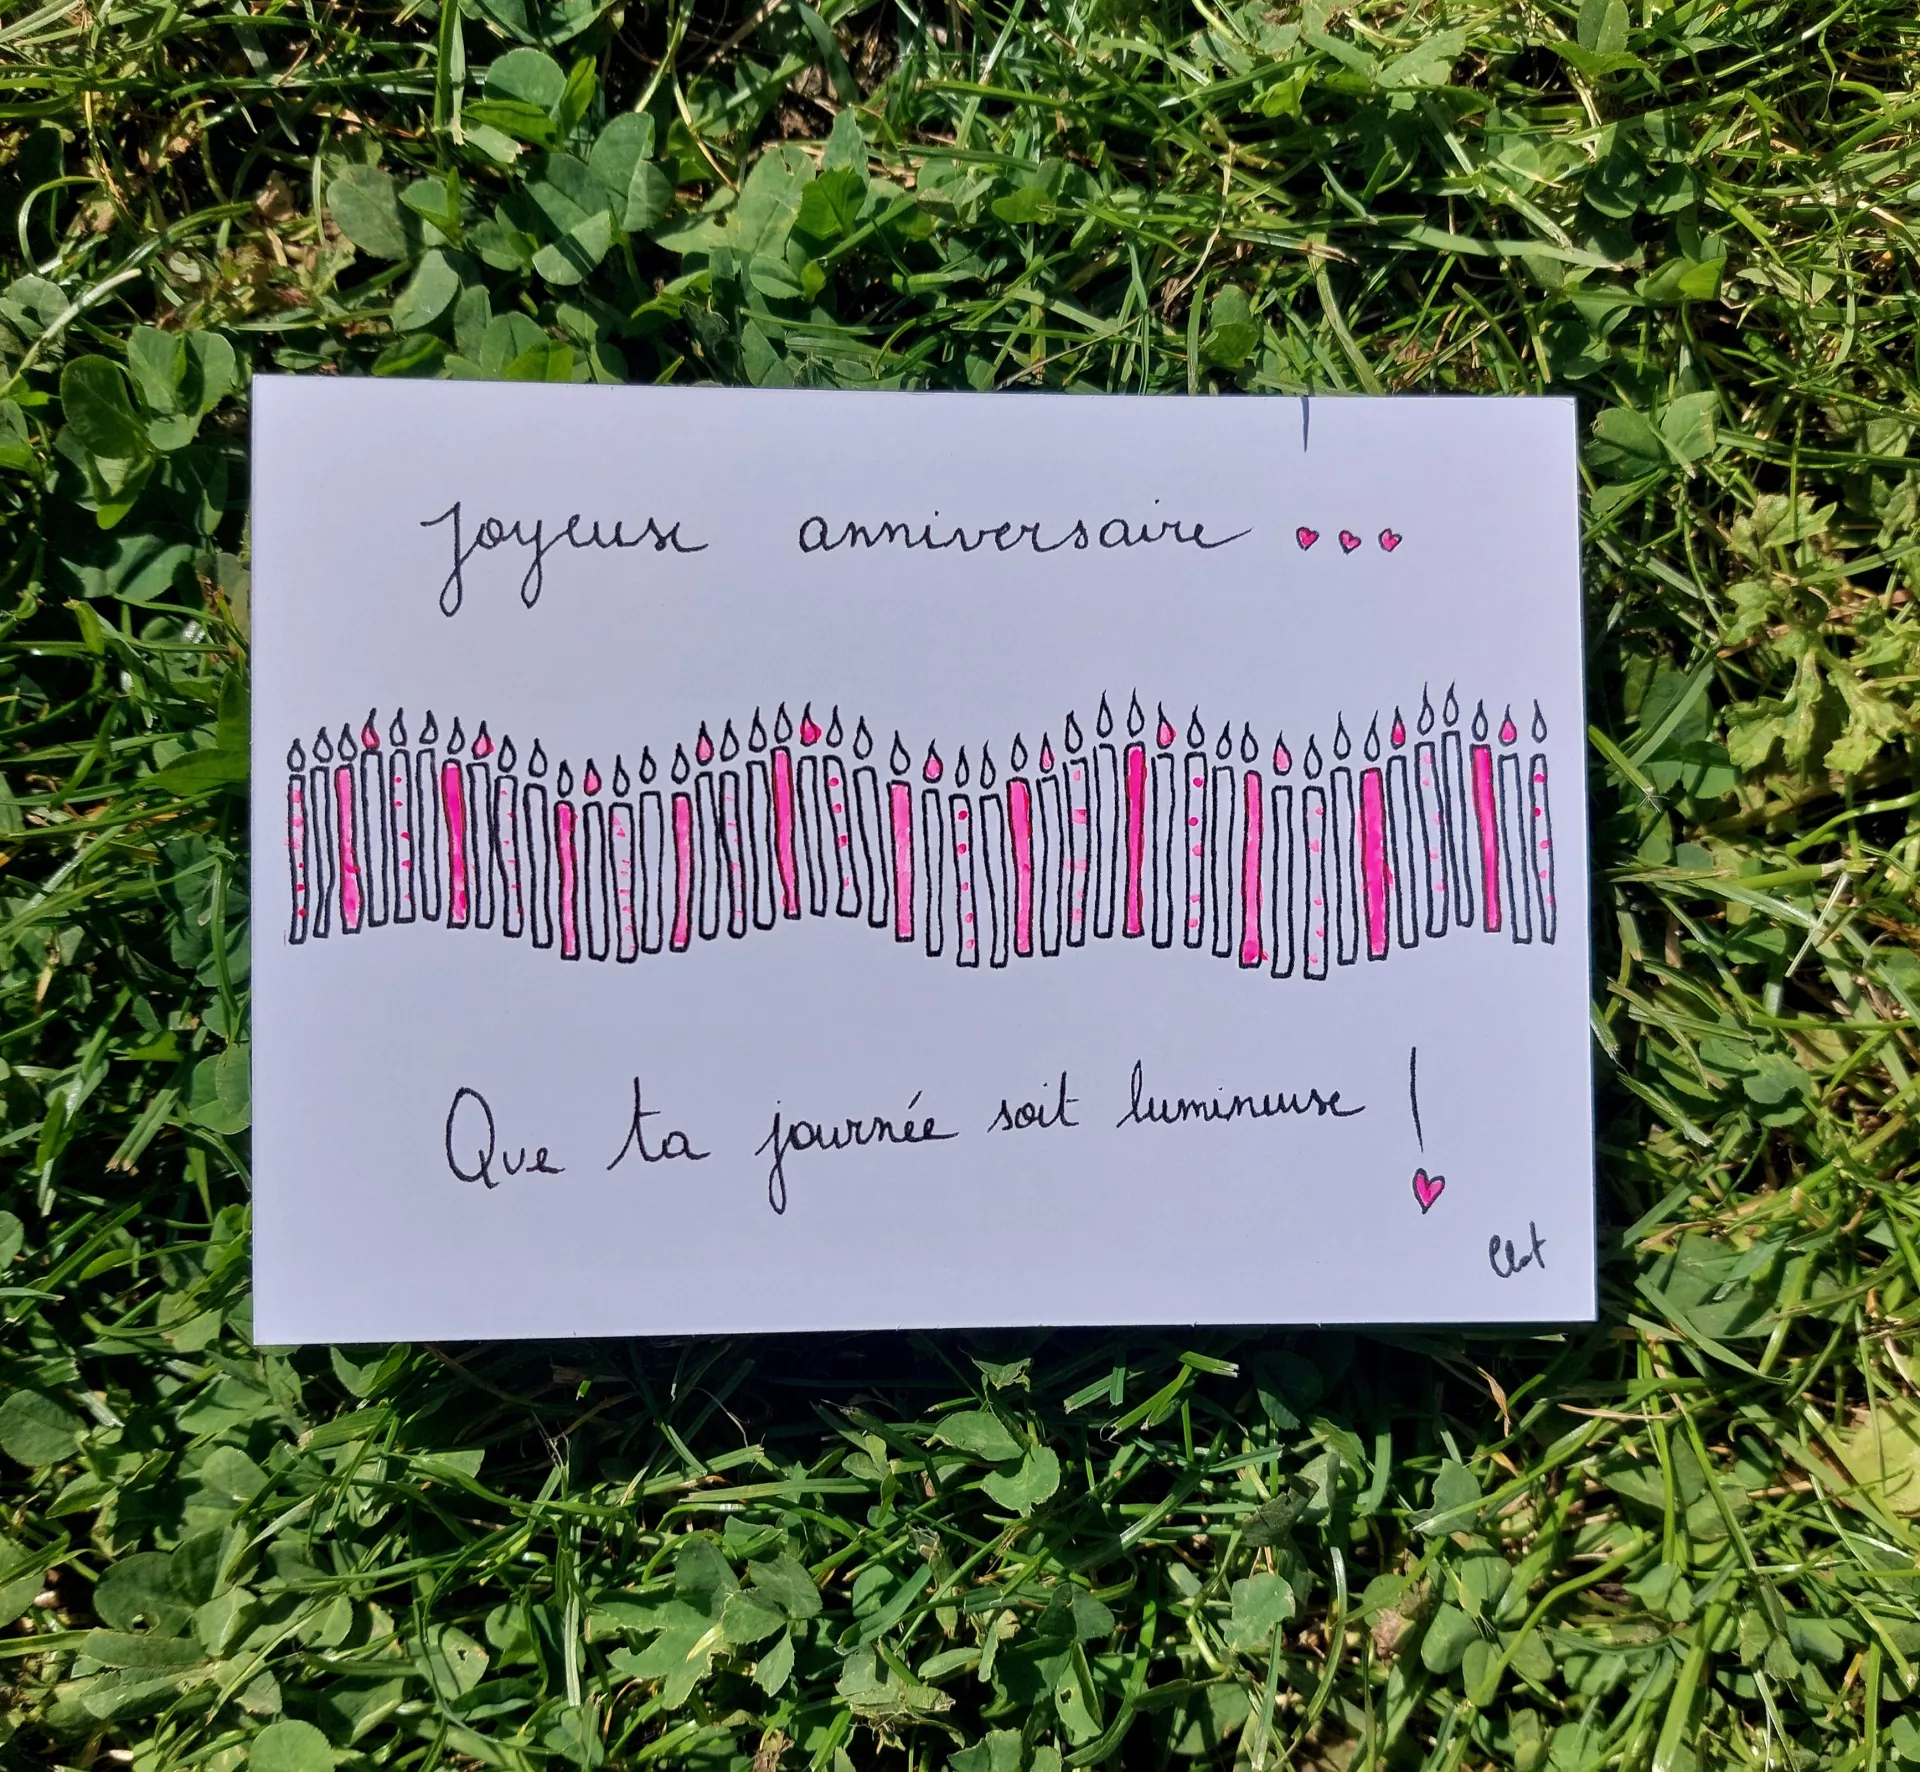 Joyeuse anniversaire ...
Que ta journée soit lumineuse !